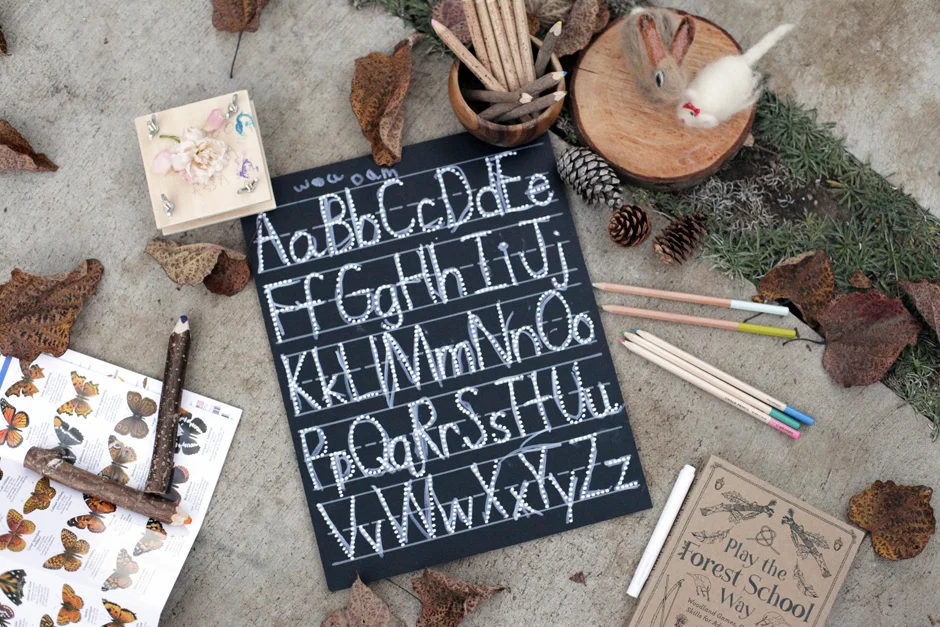 Aa Bb Cc Dd Ee
Ff Gg Hh Ii Jj
Kk Ll Mm Nn Oo
Pp Qq Rr Ss Tt Uu
Vv Ww Xx Yy Zz
Play the
Forest School
Way
Woodland Games,